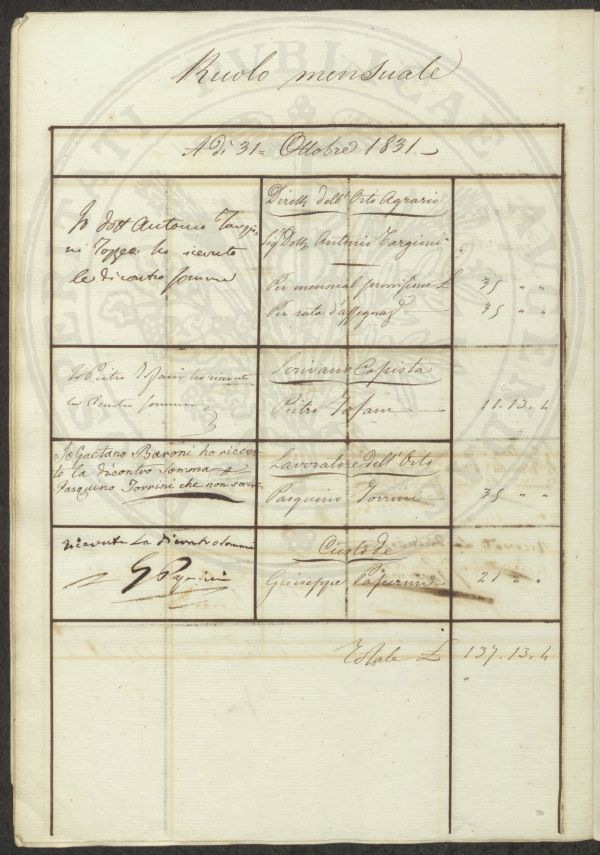 Ruolo mensuale
A dì 31= Ottobre 1831
Io Dott Antonio Targio
ni Tozzetti ho ricevuto
le dicontro somme
Dirett dell' Orto Agrario
Sig Dott Antonio Targioni
Per mensual provvisione £ 35 " "
Per rata d'assegna 35 " "
Io Pietro ho ricevuto
la somma
Scrivano Copista
Pietro 11.13.4
Io Gaetano Baroni ho ricevu
to la dicontro somma
Pasquino Torrini che non scrive
Lavoratore dell' Orto
Pasquino Torrini 35 " "
ricevuto la dicontro somma
G
Custode
Giuseppe 21 " "
Totale £ 137.13.4